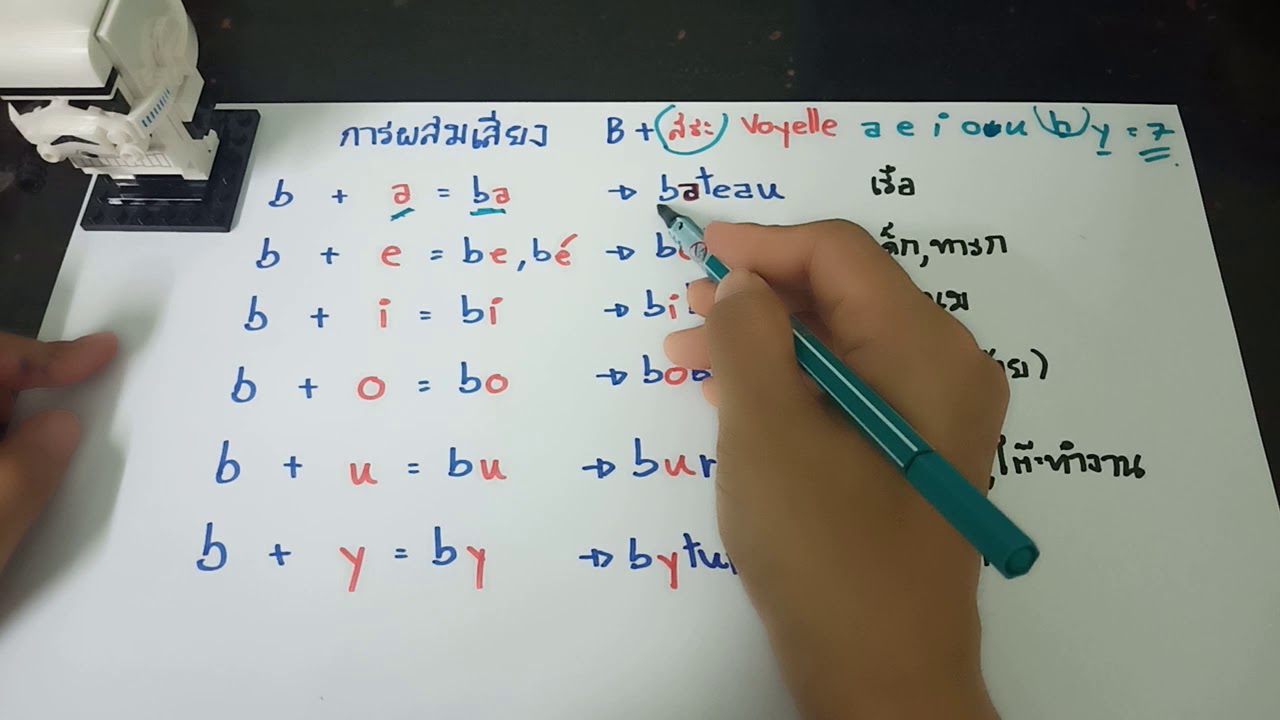 การผสมเสียง B + (สระ) Voyelle a e i o u (b) y = 7
b + a = ba → bateau เรือ
b + e = be, bé → ,ทารก
b + i = bi →
b + o = bo →
b + u = bu → โต๊ะทำงาน
b + y = by →